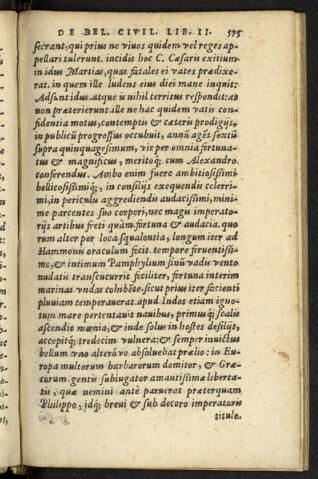 DE BEL. CIVIL. LIB. II. 595
secrant, qui prius ne viuos quidem vel reges ap-
pellari tulerunt. incidit hoc C. Cæsaris exitium
in idus Martias, quas fatales ei vates prædixe-
rat. in quem ille ludens eius diei mane inquit:
Adsunt idus. atque is nihil territus respondit: at
non præterierunt. ille ne hac quidem vatis con-
fidentia motus, contemptis & cæteris prodigijs,
in publicū progressus occubuit, annū agēs sextū
supra quinquagesimum, vir per omnia fortuna-
tus & magnificus, meritoq́; cum Alexandro
conferendus. Ambo enim fuere ambitiosissimi
bellicosissimiq́;, in consilijs exequendis celerri-
mi, in periculu aggrediendis audacissimi, mini-
me parcentes suo corpori, nec magis imperato-
rijs artibus freti quàm fortuna & audacia. quo
rum alter per loca squalentia, longum iter ad
Hammonis oraculum fecit tempore feruentissi-
mo, & intimum Pamphylium sinū vadis vento
nudatis transcucurrit feliciter, fortuna interim
marinas vndas cohibēte. sicut prius iter faciēnti
pluuiam temperauerat. apud Indos etiam igno-
tum mare pertentauit nauibus, primusq́; scalis
ascendit mœnia, & inde solus in hostes desilijt,
accepitq́; tredecim vulnera: & semper inuictus
bellum vno alteróve absoluebat prælio: in Eu-
ropa multorum barbarorum domitor, & Græ-
corum gentis subiugator amantissimæ liberta-
tis, quæ nemini antè paruerat præterquam
Philippo, idq́; breui & sub decoro imperatoris
titulo.